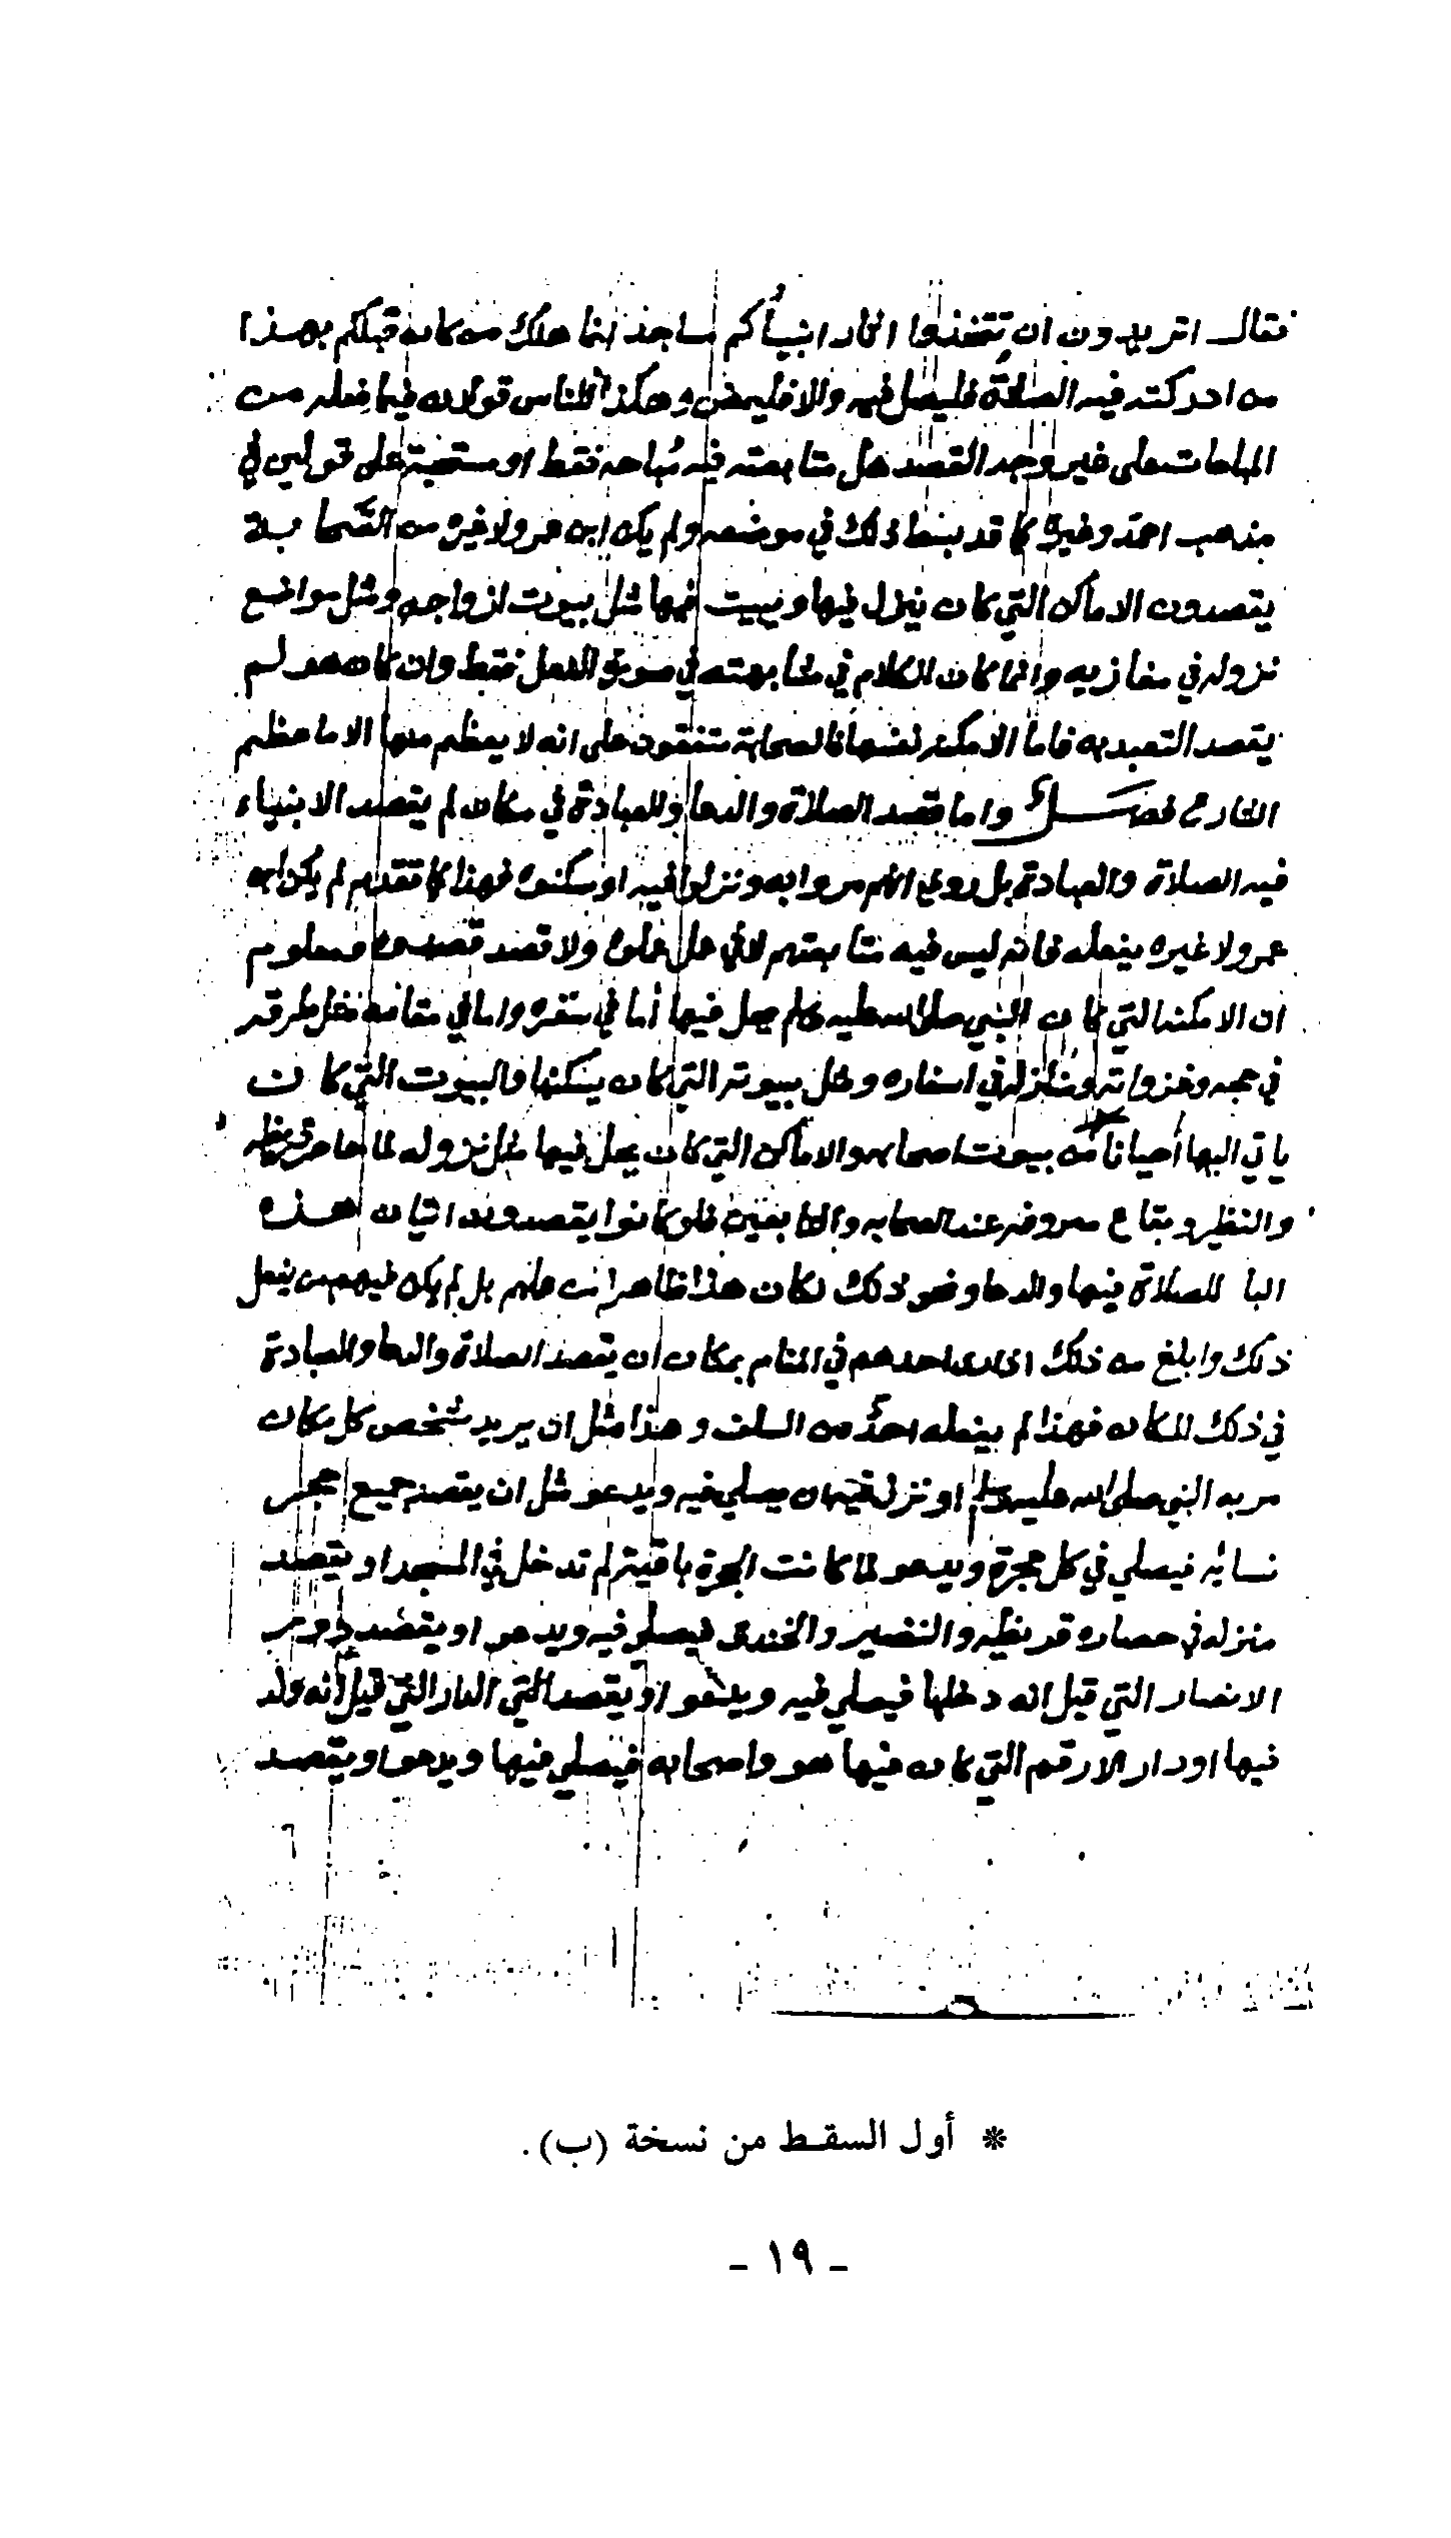 فقال اتريدون ان تتخذوا اثار انبيائكم مساجد انما هلك من كان قبلكم بهذا
من ادركته فيه الصلاة فليصل فيه والا فليمض وهكذا للناس قولان فيما فعله من
المباحات على غير وجه القصد هل متابعته فيه مباحه فقط او مستحبة على قولين في
مذهب احمد وغيره كما قد بسط ذلك في موضعه ولم يكن ابن عمر ولا غيره من الصحا بة
يقصدون الاماكن التي كان ينزل فيها ويبيت فيها مثل بيوت ازواجه ومثل مواضع
نزوله في مغازيه وانما كان الكلام في مشابهته في صورة الفعل فقط وان كان هو لم
يقصد التعبد به فاما الامكنه نفسها فالصحابة متفقون على انه لا يعظم منها الا ما عظم
الشارع فصل واما قصد الصلاة والدعا والعبادة في مكان لم يقصد الانبياء
فيه الصلاة والعبادة بل روي انهم مروا به ونزلوا فيه او سكنوه فهذا كما تقدم لم يكن ابن
عمر ولا غيره يفعله فانه ليس فيه متابعتهم لا في عمل عملوه ولا قصد قصدوه ومعلوم
ان الامكنه التي كان النبي صلى الله عليه وسلم يحل فيها أما في سفره واما في مقامه مثل طرقه
في حجه وغزواته ومنازله في اسفاره ومثل بيوته التي كان يسكنها والبيوت التي كان
ياتي اليها أحيانا من بيوت اصحابه والاماكن التي كان يحل فيها مثل نزوله لما حاصر قريظه
والنضير وبقاع معروفه عند الصحابه والتابعين فلو كانوا يقصدون اتيان هذه
البا للصلاة فيها والدعا ونحو ذلك لكان هذا ظاهرا عنهم بل لم يكن فيهم من يفعل
ذلك وابلغ من ذلك احدهم في المنام بمكان ان يقصد الصلاة والدعا والعبادة
في ذلك المكان فهذا لم يفعله احد من السلف وهذا مثل ان يريد شخص كل مكان
مر به النبي صلى الله عليه وسلم او نزل فيه ان يصلي فيه ويدعو مثل ان يقصد جميع حجر
نسائه فيصلي في كل حجرة ويدعو لما كانت الحجرة باقية لم تدخل في المسجد او يقصد
منزله في حصاره قريظه والنضير والخندق فيصلي فيه ويدعو او يقصد دور
الانصار التي قيل انه دخلها فيصلي فيه ويدعو او يقصد التي الدار التي قيل أنه ولد
فيها او دار الارقم التي كان فيها هو واصحابه فيصلي فيها ويدعو او يقصد
* أول السقط من نسخة (ب).
- ١٩ -